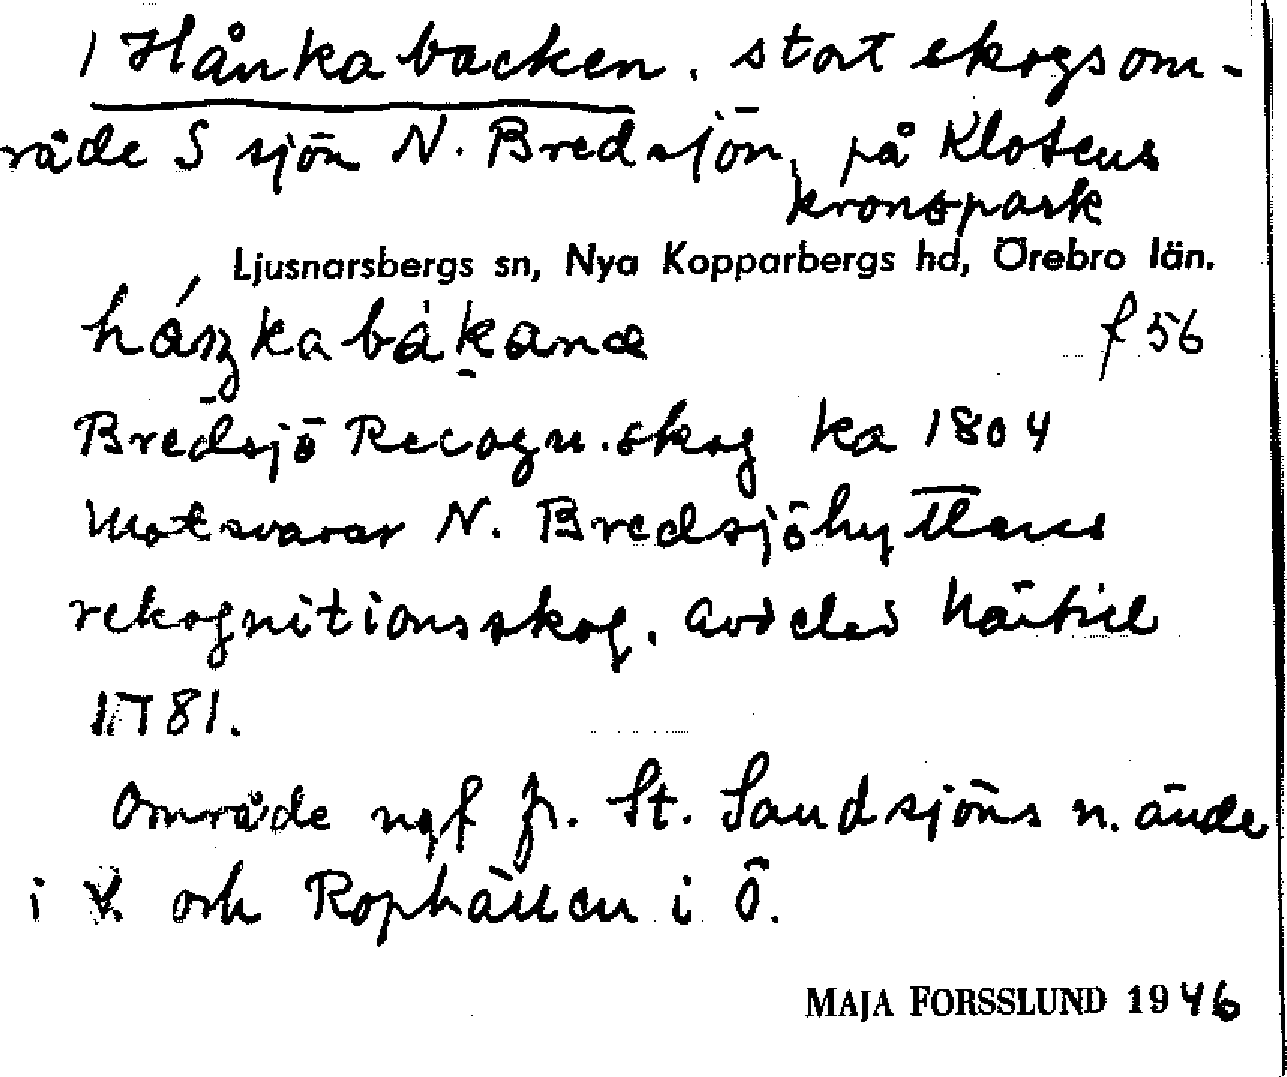 1 Hånkabacken. stort skogsom-
råde S sjön N. Bredsjön, på Klotens
kronopark
Ljusnarsbergs sn, Nya Kopparbergs hd, Örebro län.
f 56
Bredsjö Recogn. skog ka 1804
Motsvarar N. Bredsjöhyttans
rekognitionsskog. avdelad härtill
1781.
Område ngf fr. St. Sandsjöns n. ände
i V. och Rophällen i Ö.
MAJA FORSSLUND 1946